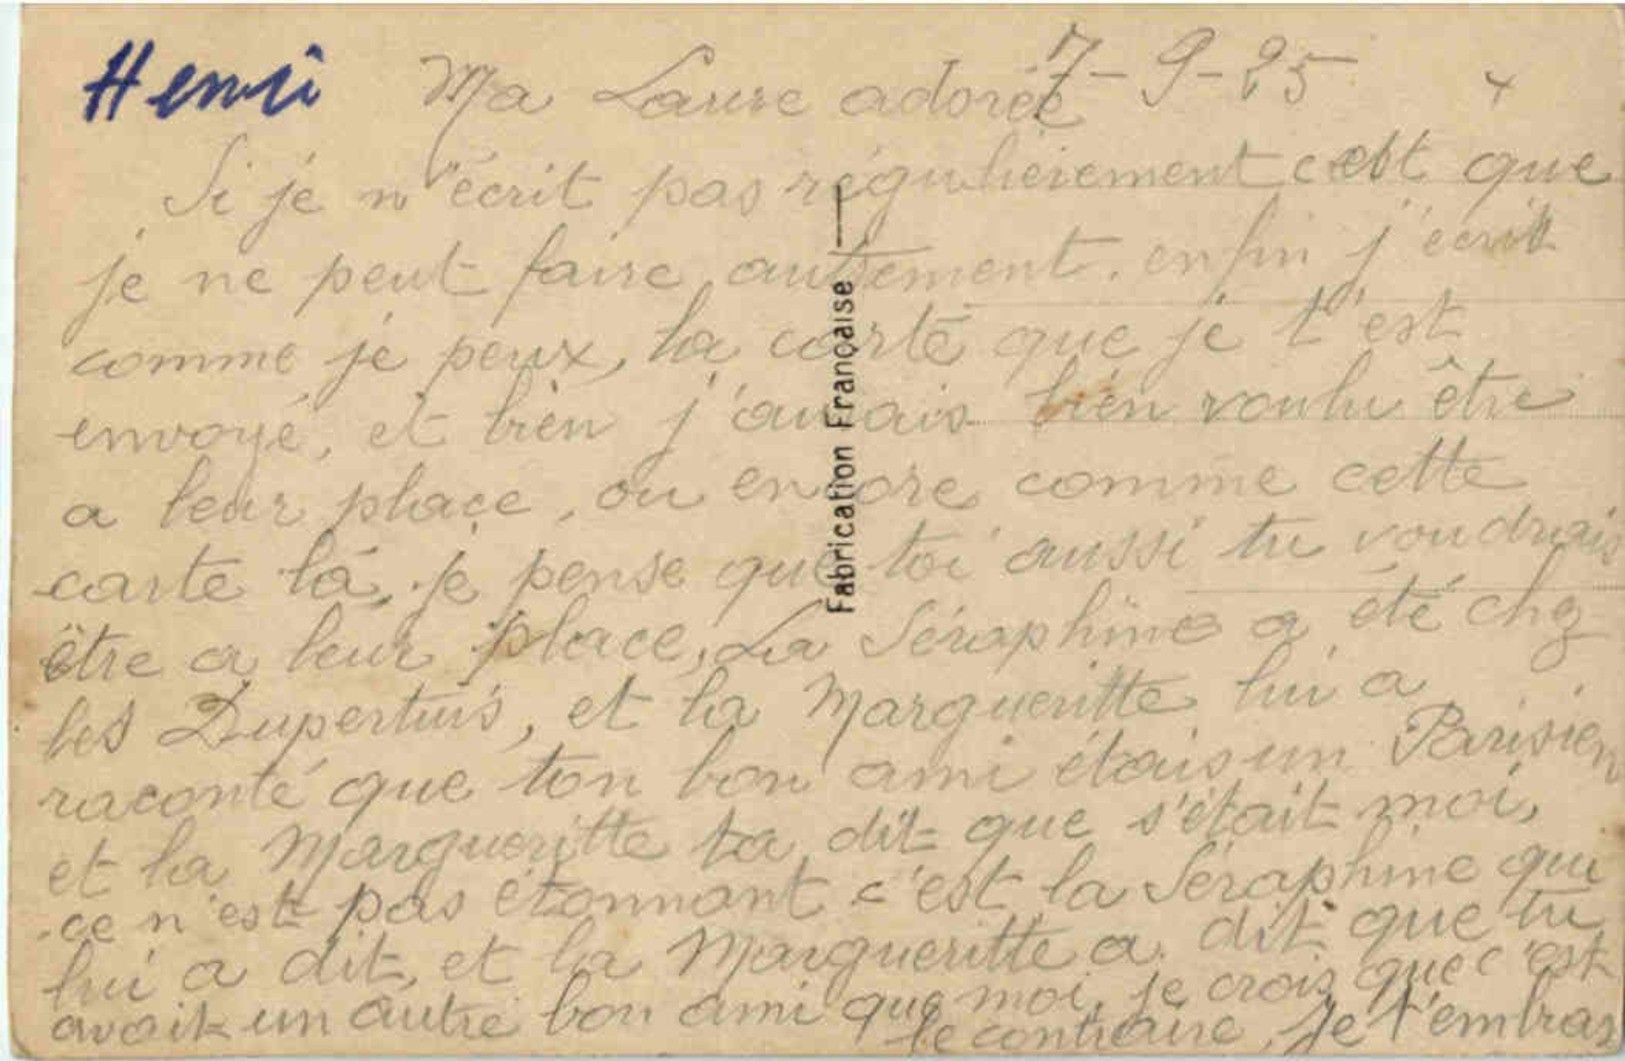 Henri
7-9-25
Ma Laure adorée
Si je n'écrit pas régulièrement c'est que
je ne peut faire autrement. enfin j'écrit
comme je peux, la carte que je t'est
envoyé, et bien j'aurais bien voulu être
a leur place, ou encore comme cette
carte là, je pense que toi aussi tu voudrais
être a leur place, La Séraphine a été chez
les Dupertuis, et la Margueritte lui a
raconté que ton bon ami étais un Parisien
et la Margueritte ta dit que s'était moi,
ce n'est pas étonnant c'est la Séraphine qui
lui a dit, et la Margueritte a dit que tu
avait un autre bon ami que moi, je crois que c'est
le contraire, je t'embras
Fabrication Française